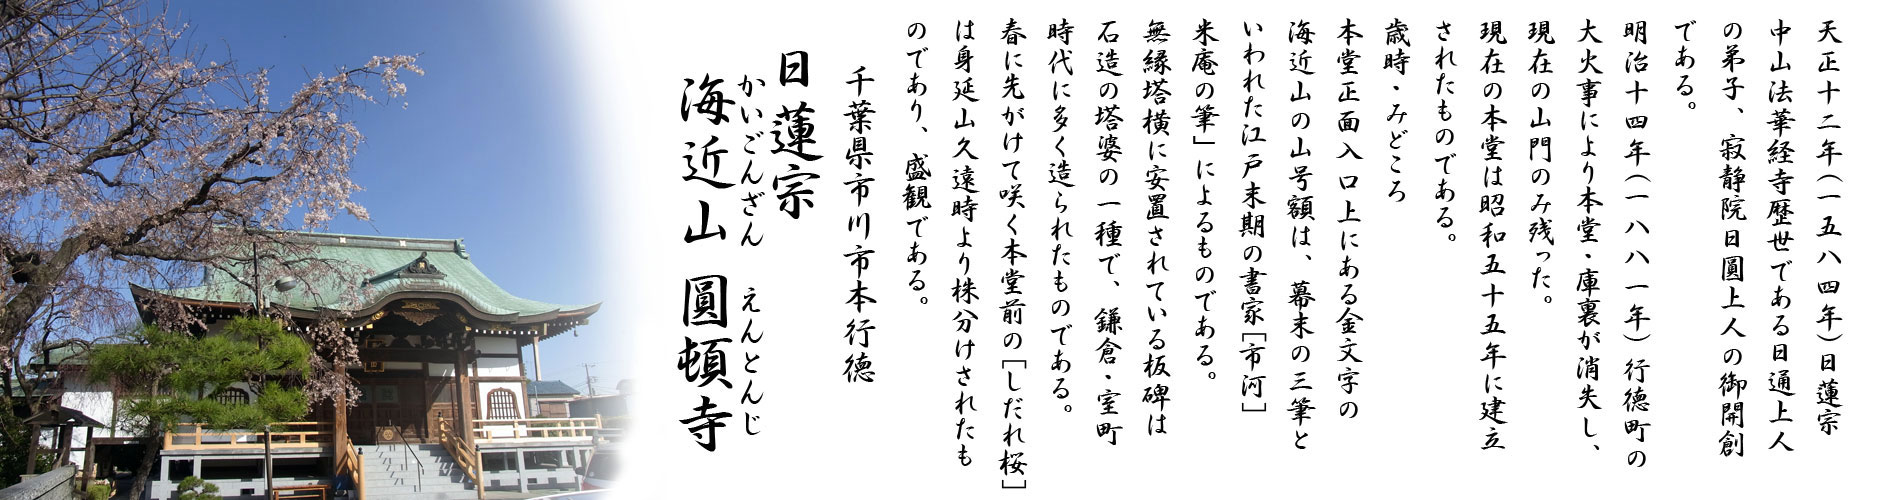 天正十二年(一五八四年)日蓮宗
中山法華経寺歴世である日通上人
の弟子、寂静院日圓上人の御開創
である。
明治十四年(一八八一年)行徳町の
大火事により本堂・庫裏が消失し、
現在の山門のみ残った。
現在の本堂は昭和五十五年に建立
されたものである。
歳時・みどころ
本堂正面入口上にある金文字の
海近山の山号額は、幕末の三筆と
いわれた江戸末期の書家[市河]
米庵の筆」によるものである。
無縁塔横に安置されている板碑は
石造の塔婆の一種で、鎌倉・室町
時代に多く造られたものである。
春に先がけて咲く本堂前の[しだれ桜]
は身延山久遠時より株分けされたも
のであり、盛観である。
千葉県市川市本行徳
日蓮宗
かいごんざん えんとんじ
海近山 圓頓寺